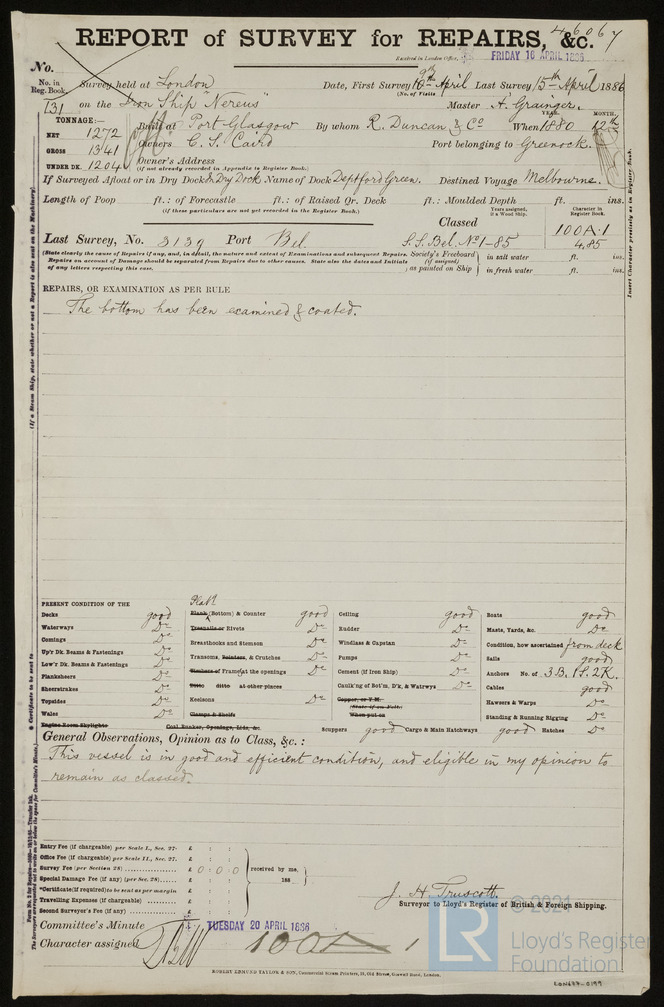 46067
REPORT of SURVEY for REPAIRS, &c.
Received in London Office, FRIDAY 16 APRIL 1886
No.
No. in Reg. Book. Survey held at London Date, First Survey 9th April Last Survey 15th April 1886
(No. of Visits
731 on the Iron Ship "Nereus" Master A. Grainger.
TONNAGE:— YEAR. MONTH.
NET 1272 Built at Port Glasgow By whom R. Duncan & Co When 1880 12th
GROSS 1341 Owners C. S. Caird Port belonging to Greenock.
UNDER DK. 1204 Owner's Address
(if not already recorded in Appendix to Register Book.)
If Surveyed Afloat or in Dry Dock In Dry Dock Name of Dock Deptford Green. Destined Voyage Melbourne.
Length of Poop ft.: of Forecastle ft.: of Raised Qr. Deck ft.: Moulded Depth ft. ins.
(if these particulars are not yet recorded in the Register Book.) Years assigned, if a Wood Ship. Character in Register Book.
Classed 100A.1
Last Survey, No. 3139 Port Bel. S.S. Bel. No1-85 4,85
(State clearly the cause of Repairs if any, and, in detail, the nature and extent of Examinations and subsequent Repairs. Society's Freeboard in salt water ft. ins.
Repairs on account of Damage should be separated from Repairs due to other causes. State also the dates and Initials (if assigned)
of any letters respecting this case. as painted on Ship in fresh water ft. ins.
Insert Character precisely as in Register Book.
REPAIRS, OR EXAMINATION AS PER RULE
The bottom has been examined & coated.
(If a Steam Ship, state whether or not a Report is also sent on the Machinery)
PRESENT CONDITION OF THE
Decks good
Waterways Do
Comings Do
Up'r Dk. Beams & Fastenings Do
Low'r Dk. Beams & Fastenings Do
Planksheers Do
Sheerstrakes Do
Topsides Do
Wales Do
Engine Room Skylights
Plate
Plank (Bottom) & Counter good
Treenails or Rivets Do
Breasthooks and Stemson Do
Transoms, Pointers, & Crutches Do
Timbers of Frame at the openings Do
Ditto ditto at other places
Keelsons Do
Clamps & Shelfs
Coal Bunker, Openings, Lids, &c.
Ceiling good
Rudder Do
Windlass & Capstan Do
Pumps Do
Cement (if Iron Ship) Do
Caulk'ng of Bot'm, D'k, & Watrwys Do
Copper, or Y.M.
(State if on Felt)
When put on
Scuppers good Cargo & Main Hatchways good Hatches Do
Boats good
Masts, Yards, &c. Do
Condition, how ascertained from deck
Sails good
Anchors No. of 3.B. 1S. 2K.
Cables good
Hawsers & Warps Do
Standing & Running Rigging Do
General Observations, Opinion as to Class, &c. :
This vessel is in good and efficient condition, and eligible in my opinion to
remain as classed.
Entry Fee (if chargeable) per Scale I., Sec. 27. £ : :
Office Fee (if chargeable) per Scale II., Sec. 27. £ : :
Survey Fee (per Section 28) £ 0 : 0 : 0 received by me,
Special Damage Fee (if any) (per Sec. 28) £ : : 188
*Certificate (if required) to be sent as per margin £ : :
Travelling Expenses (if chargeable) £ : :
Second Surveyor's Fee (if any) £ : :
J. H. Truscott.
Surveyor to Lloyd's Register of British & Foreign Shipping.
Committee's Minute TUESDAY 20 APRIL 1886
Character assigned 100A 1
ROBERT EDMUND TAYLOR & SON, Commercial Steam Printers, 19, Old Street, Goswell Road, London.
LR
© 2021
Lloyd's Register
Foundation
LON677-0199